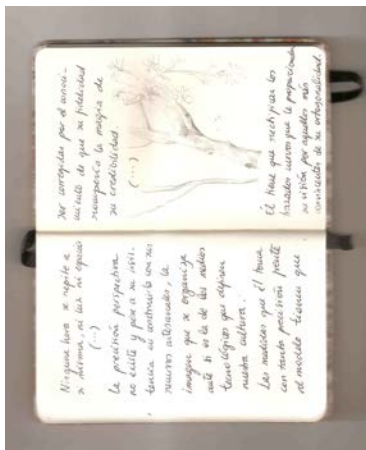 Ninguna hora se repite a
sí misma, ni luz ni espacio
(...)
La precisión perspectiva
no existe y pese a su insis-
tencia en construirla con sus
recursos artesanales, la
imagen que se organiza
ante sí es la de los medios
tecnológicos que definen
nuestra cultura.
Las medidas que él toma
con tanta precisión frente
al modelo tienen que
ser corregidas por el conoci-
miento de que su fidelidad
rompería la magia de
su credibilidad.
(...)
Él tiene que rectificar los
trazados nuevos que le proporciona
su visión por aquellos más
conscientes de su ortogonalidad.